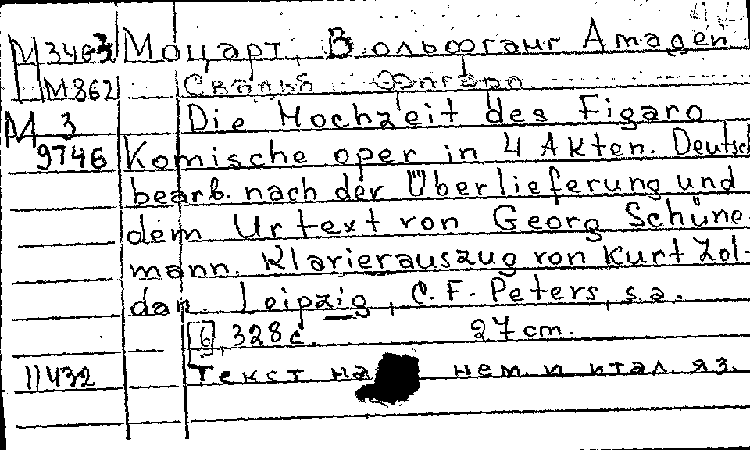 М3463 Моцарт, Вольфганг Амадей
М862 Свадьба Фигаро
М 3 Die Hochzeit des Figaro
9746 Komische oper in 4 Akten. Deutsch
bearb. nach der Überlieferung und
dem Urtext von Georg Schüne-
mann. Klavierauszug von Kurt Sol-
dan. Leipzig, C. F. Peters, s.a.
[6], 328 с. 27 cm.
11432 Текст на нем. и итал. яз.